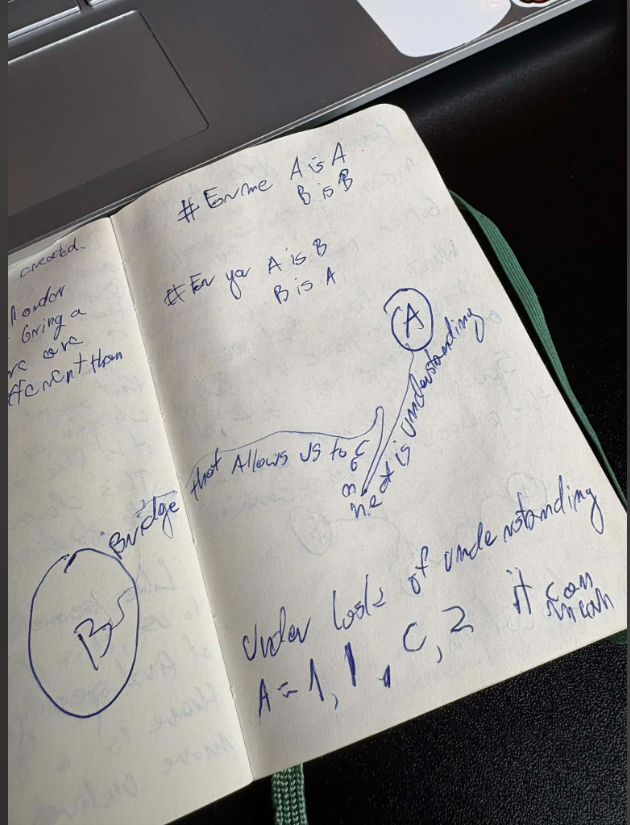 created.
order
bring a
are
than
# For me A is A
B is B
# For you A is B
B is A
A
Bridge that Allows us to connect is understanding
B
Under lack of understanding
A = 1, 1, C, 2 it can mean